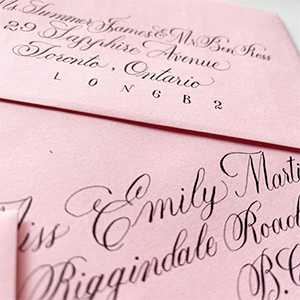 Ms. Summer James & Mr. Ben Ross
29 Sapphire Avenue
Toronto, Ontario
L0N6B2
iss Emily Marti
Riggindale Road
B.C